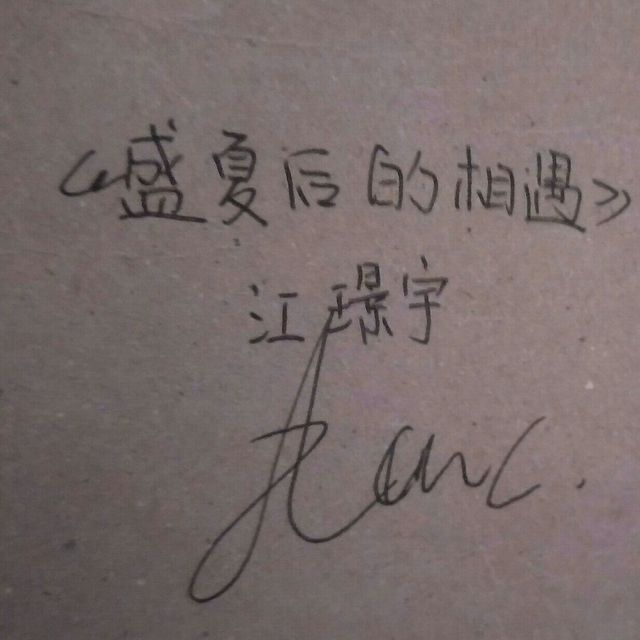 《盛夏后的相遇》
江璟宇